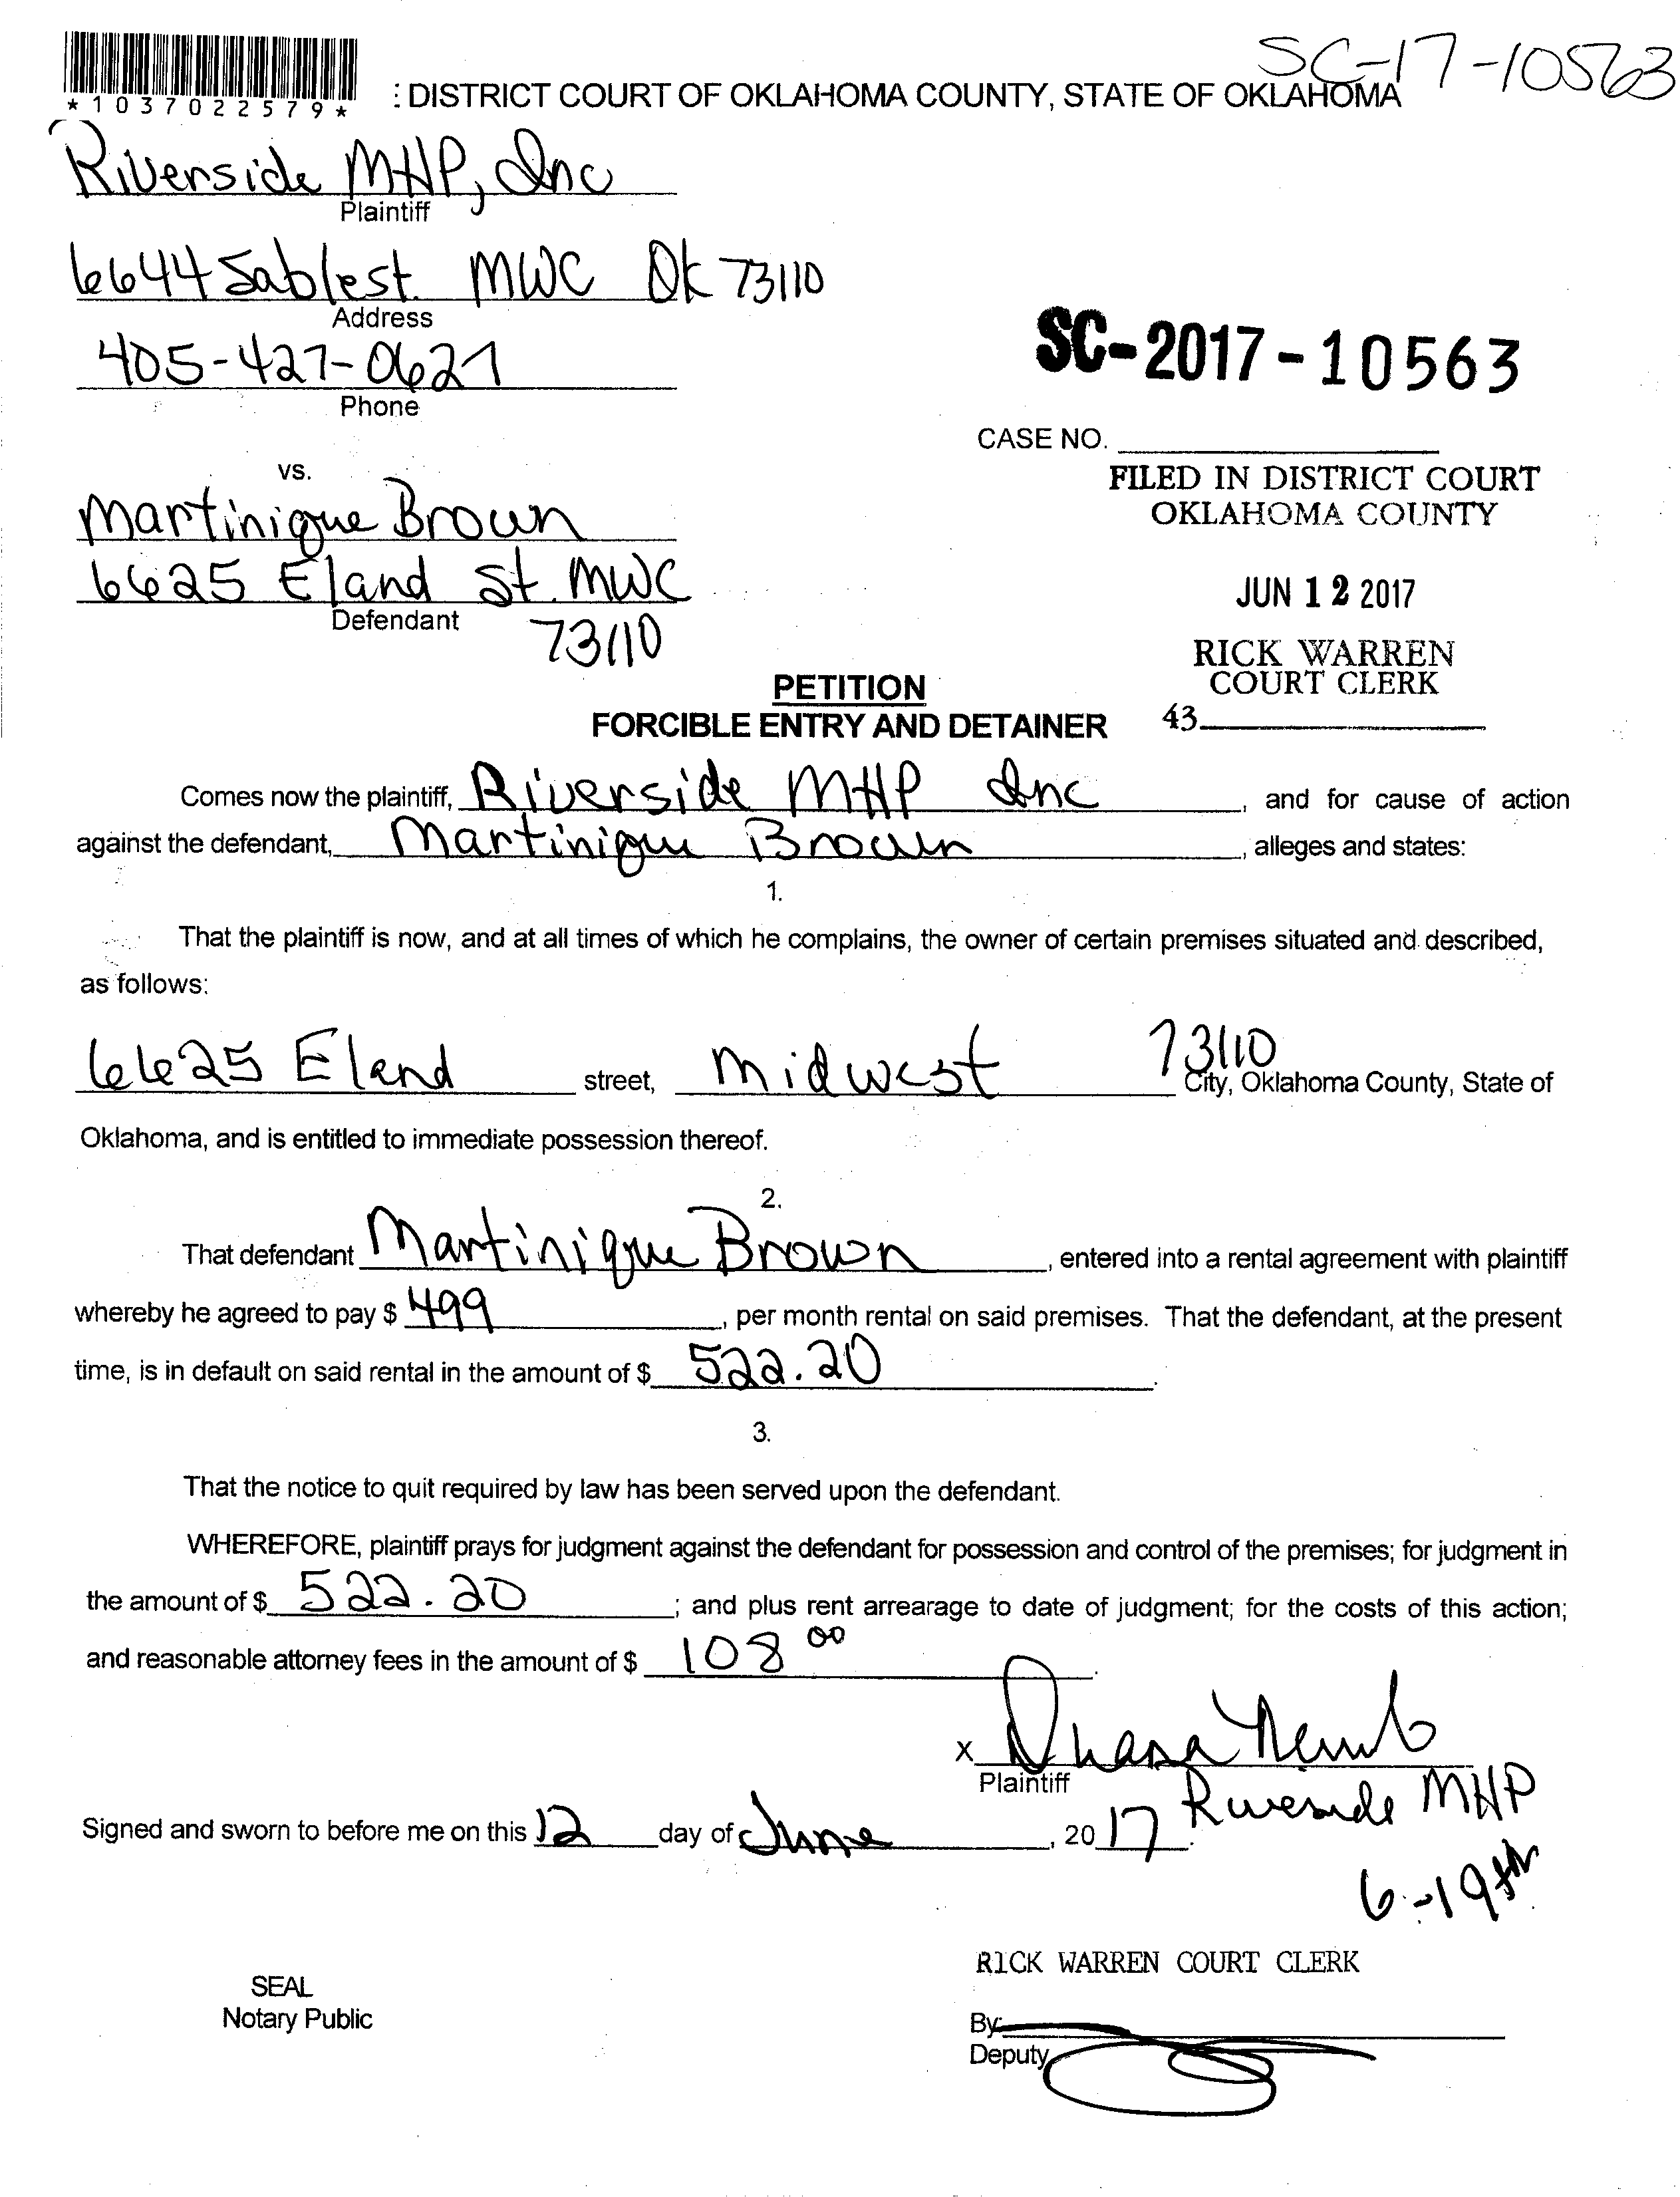 SC-17-10563
*1037022579*
: DISTRICT COURT OF OKLAHOMA COUNTY, STATE OF OKLAHOMA
Riverside MHP, Inc
Plaintiff
6644 Sable st. MWC OK 73110
Address
405-427-0621
Phone
SC-2017-10563
CASE NO.
vs.
FILED IN DISTRICT COURT
OKLAHOMA COUNTY
Martinique Brown
6625 Eland St. MWC
Defendant
73110
JUN 12 2017
RICK WARREN
COURT CLERK
43
PETITION
FORCIBLE ENTRY AND DETAINER
Comes now the plaintiff, Riverside MHP Inc, and for cause of action
against the defendant, Martinique Brown, alleges and states:
1.
That the plaintiff is now, and at all times of which he complains, the owner of certain premises situated and described,
as follows:
6625 Eland street, Midwest 73110 City, Oklahoma County, State of
Oklahoma, and is entitled to immediate possession thereof.
2.
That defendant Martinique Brown, entered into a rental agreement with plaintiff
whereby he agreed to pay $ 499, per month rental on said premises. That the defendant, at the present
time, is in default on said rental in the amount of $ 522.20.
3.
That the notice to quit required by law has been served upon the defendant.
WHEREFORE, plaintiff prays for judgment against the defendant for possession and control of the premises; for judgment in
the amount of $ 522.20; and plus rent arrearage to date of judgment; for the costs of this action;
and reasonable attorney fees in the amount of $ 108 00.
X
Plaintiff
Riverside MHP
Signed and sworn to before me on this 12 day of June, 2017.
6-19th
RICK WARREN COURT CLERK
SEAL
Notary Public
By:
Deputy